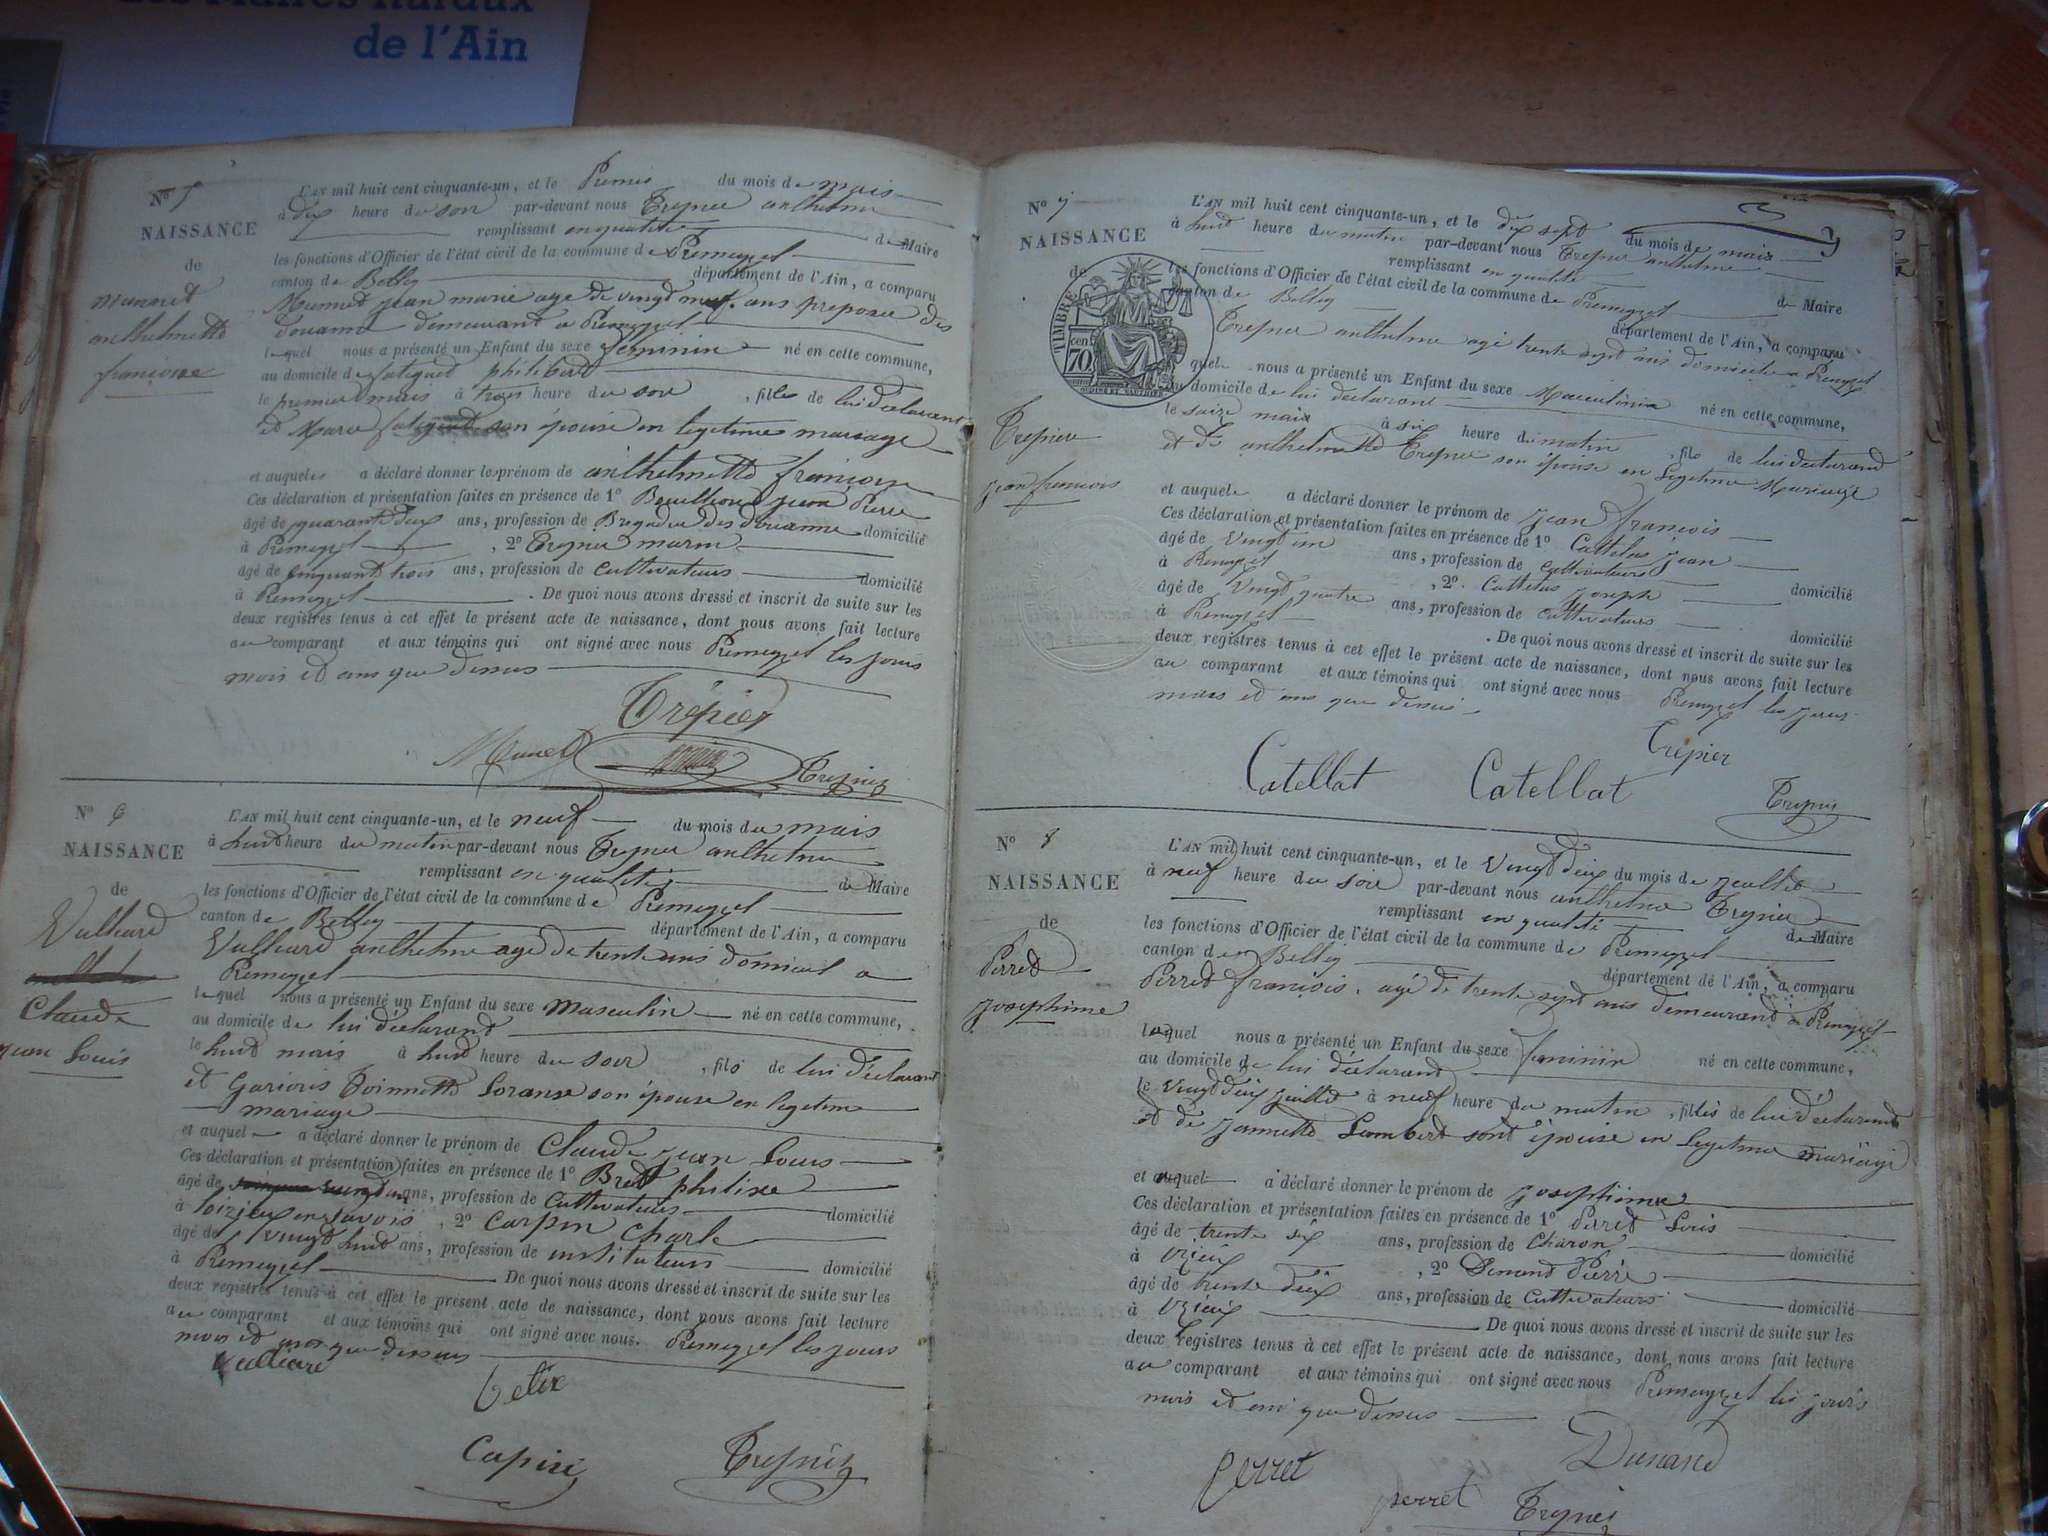 des Maires Ruraux
de l'Ain
No 5
NAISSANCE
de
anthelmette
françoise
L'AN mil huit cent cinquante-un, et le Premier du mois de mars
à dix heure du soir par-devant nous Trepier anthelme
remplissant en qualité de Maire
les fonctions d'Officier de l'état civil de la commune de Premeyzel
canton de Belley département de l'Ain, a comparu
jean marie age de vingt neuf ans preposer des
douanne demeurant a Premeyzel
lequel nous a présenté un Enfant du sexe feminin né en cette commune,
au domicile de philibert
le premier mars à trois heure du soir, filles de lui déclarant
et Marie son épouse en legetime mariage
et auquelel a déclaré donner les prénom de anthelmette françoise
Ces déclaration et présentation faites en présence de 1o jean Pierre
âgé de quarante deux ans, profession de Brigadier des douanne domicilié
à Premeyzel, 2o Trepier marin
âgé de cinquante trois ans, profession de cultivateurs domicilié
à Premeyzel. De quoi nous avons dressé et inscrit de suite sur les
deux registres tenus à cet effet le présent acte de naissance, dont nous avons fait lecture
au comparant et aux témoins qui ont signé avec nous Premeyzel les jours
mois et ans que dessus
Trépier
Trepier
No 6
NAISSANCE
de
Vulliard
Claude
jean Louis
L'AN mil huit cent cinquante-un, et le neuf du mois du mars
à huit heure du matin par-devant nous Trepier anthelme
remplissant en qualité de Maire
les fonctions d'Officier de l'état civil de la commune de Premeyzel
canton de Belley département de l'Ain, a comparu
Vulliard anthelme age de trente ans domicil a
Premeyzel
lequel nous a présenté un Enfant du sexe masculin né en cette commune,
au domicile de lui déclarant
le huit mars à huit heure du soir, fils de lui déclarant
et son épouse en legetime
mariage
et auquel a déclaré donner le prénom de Claude jean Louis
Ces déclaration et présentation faites en présence de 1o
âgé de ans, profession de Cultivateurs domicilié
à loizieux en savois, 2o Carpin Charle
âgé de vingt huit ans, profession de instituteurs domicilié
à Premeyzel De quoi nous avons dressé et inscrit de suite sur les
deux registres tenus à cet effet le présent acte de naissance, dont nous avons fait lecture
au comparant et aux témoins qui ont signé avec nous. Premeyzel les jours
mois et ans que dessus
Trepier
No 7
NAISSANCE
de
TIMBRE
70 cen
Trepier
jean francois
L'AN mil huit cent cinquante-un, et le dix sept du mois de mars
à huit heure du matin par-devant nous Trepier anthelme
remplissant en qualité de Maire
les fonctions d'Officier de l'état civil de la commune de Premeyzel
canton de Belley département de l'Ain, a comparu
Trepier anthelme agé trente sept ans domicile a Premeyzel
quel nous a présenté un Enfant du sexe Masculinin né en cette commune,
au domicile de lui déclarant
le saize mars à six heure du matin, fils de lui déclarant
et de anthelmette Trepier son épouse en Legetime Mariage
et auquele a déclaré donner le prénom de jean françois
Ces déclaration et présentation faites en présence de 1o Cattelas jean
âgé de vingt un ans, profession de cultivateurs domicilié
à Premeyzel, 2o. Cattelas joseph
âgé de vingt quatre ans, profession de cultivateurs domicilié
à Premeyzel. De quoi nous avons dressé et inscrit de suite sur les
deux registres tenus à cet effet le présent acte de naissance, dont nous avons fait lecture
au comparant et aux témoins qui ont signé avec nous Premeyzel les jours
mois et ans que dessus
Trépier
Catellat Catellat
Trepier
No 8
NAISSANCE
de
Perret
josephime
L'AN mil huit cent cinquante-un, et le vingt deux du mois de juillet
à neuf heure du soir par-devant nous anthelme Trepier
remplissant en qualité de Maire
les fonctions d'Officier de l'état civil de la commune de Premeyzel
canton de Belley département de l'Ain, a comparu
Perret françois, agé de trente sept ans demeurant a Premeyzel
lequel nous a présenté un Enfant du sexe feminin né en cette commune,
au domicile de lui déclarant
le vingt deux juillet à neuf heure du matin, filles de lui déclarant
et de jannette Lambert sont épouse en Legetime mariage
et auquel a déclaré donner le prénom de josephime
Ces déclaration et présentation faites en présence de 1o Perret Louis
âgé de trente six ans, profession de Charon domicilié
à, 2o Pierre
âgé de trente deux ans, profession de Cultivateurs domicilié
à De quoi nous avons dressé et inscrit de suite sur les
deux registres tenus à cet effet le présent acte de naissance, dont nous avons fait lecture
au comparant et aux témoins qui ont signé avec nous Premeyzel les jours
mois et an que dessus
Dunand
Perret
perret
Trepier